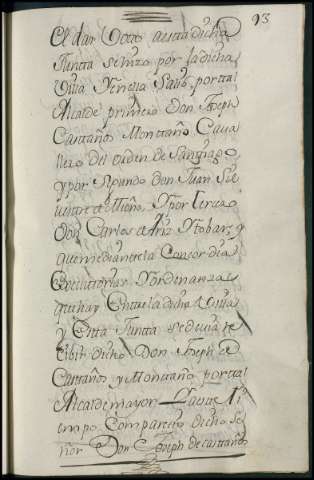 13
el dar Votos a esta dicha
Juntta se hizo por la dicha
Villa Venella Salio por tal
Alcalde primero Don Joseph
Castaños Monttaño Cava
llero del orden de Santtiago
y por segundo Don Juan
el Menor, y por tercero
Don Carlos de Ariz Ytobar, y
que mediante la Concordia
Executtorias Y ordenanzas
que hay Entre la dicha Villa
y Esta Juntta se devia re
cibir dicho Don Joseph de
Castaños y Monttaño por tal
Alcalde mayor
mpo Comparecio dicho Se
ñor Don Joseph de castaños